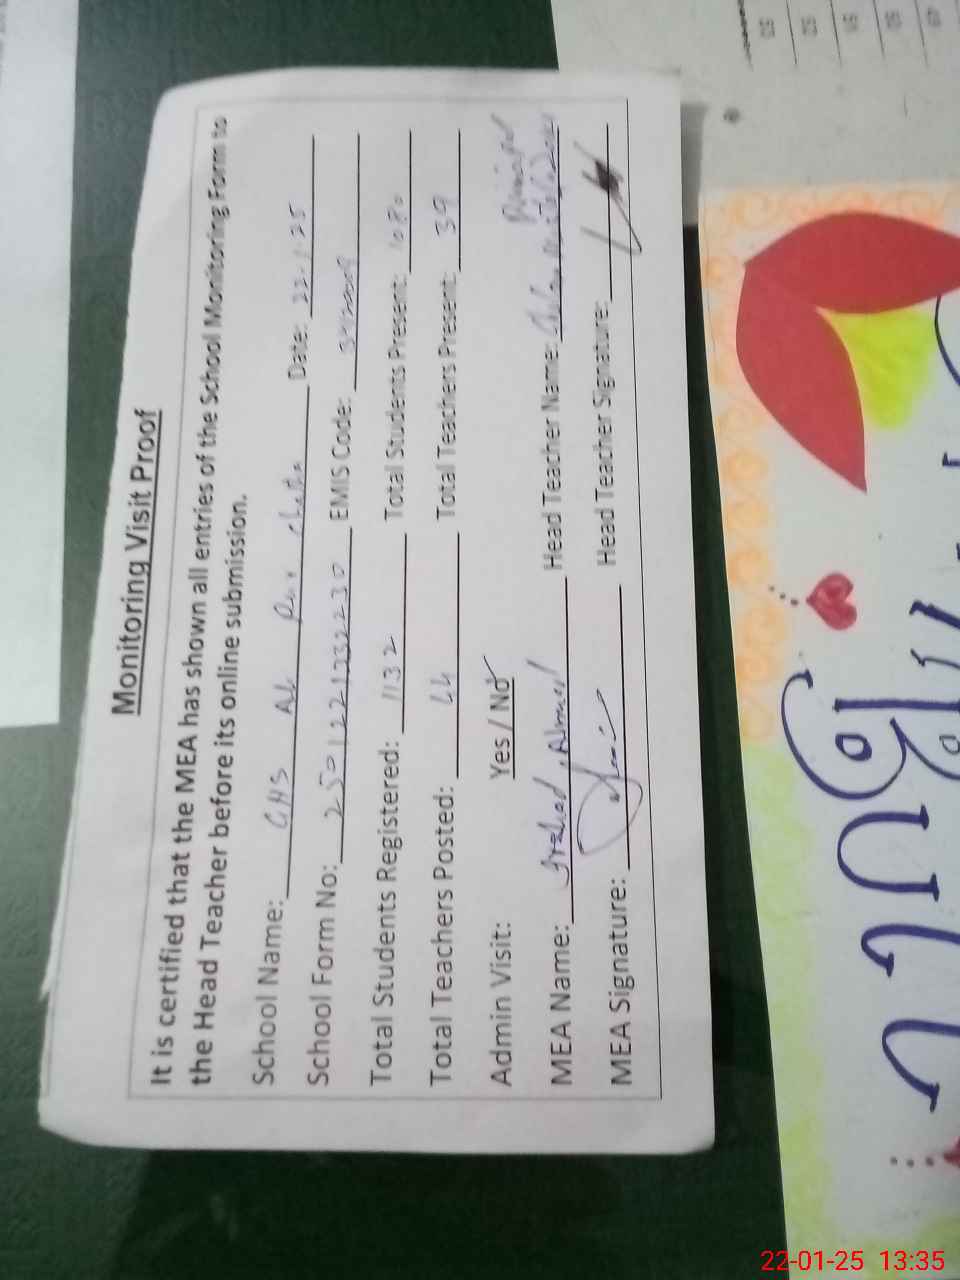 Monitoring Visit Proof
It is certified that the MEA has shown all entries of the School Monitoring Form to
the Head Teacher before its online submission.
School Name: GHS Ali Pur Chatha Date: 22.1.25
School Form No: EMIS Code:
Total Students Registered: 1132 Total Students Present: 1080
Total Teachers Posted: 44 Total Teachers Present: 39
Admin Visit: Yes / No Principal
MEA Name: Arshad Ahmad Head Teacher Name:
MEA Signature: Head Teacher Signature:
49
50
51
52
53
22-01-25 13:35